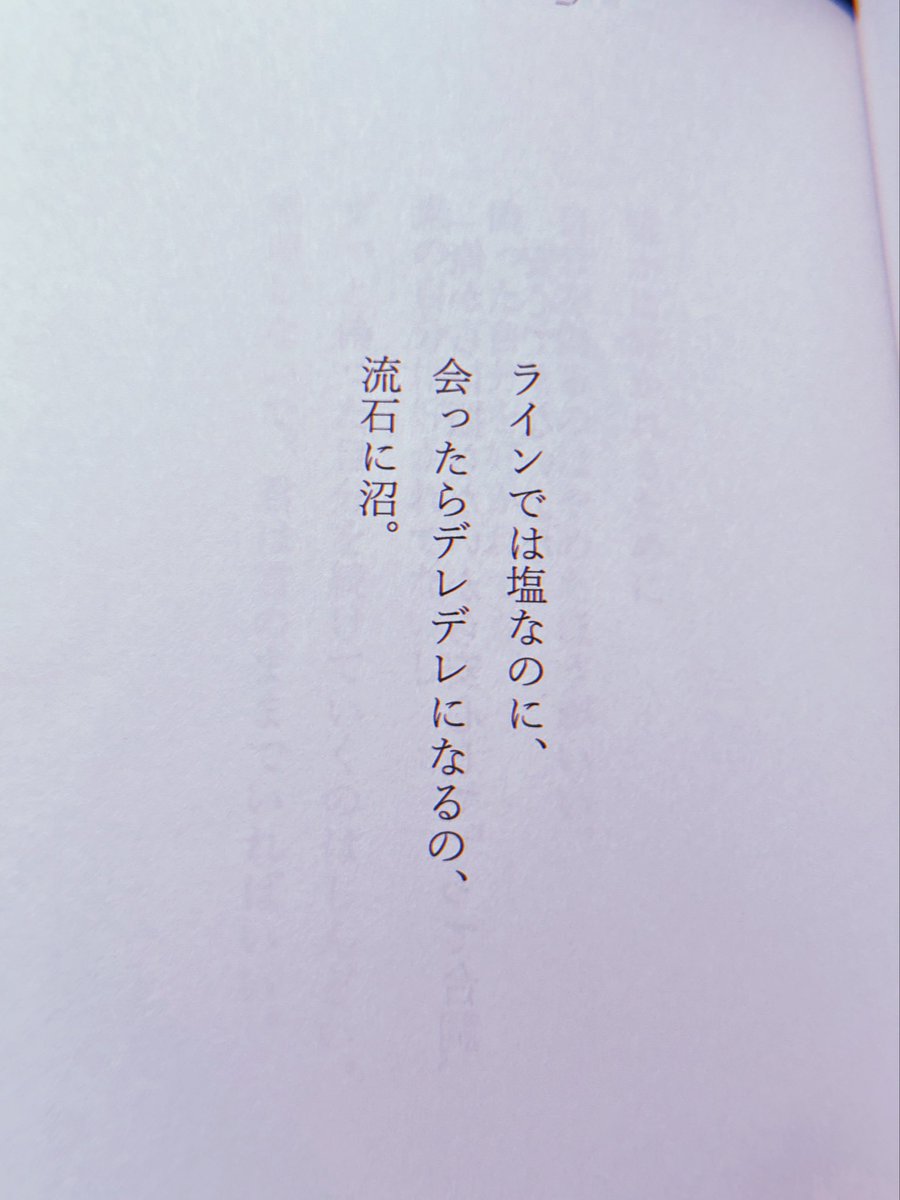 ラインでは塩なのに、
会ったらデレデレになるの、
流石に沼。